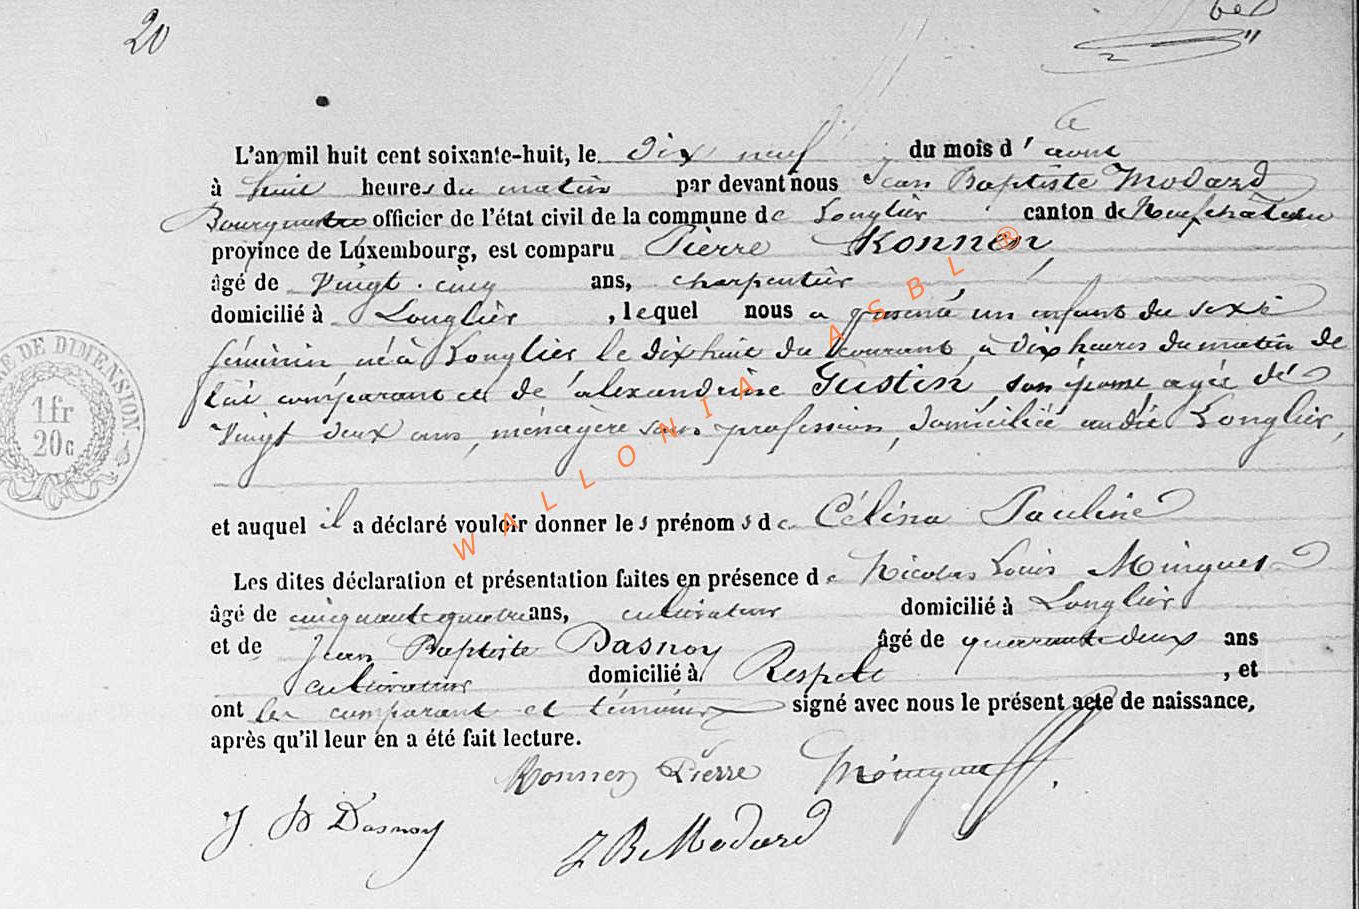 20
L'an mil huit cent soixante-huit, le dix neuf du mois d'août
à huit heures du matin par devant nous Jean Baptiste Modard
Bourgmestre officier de l'état civil de la commune de Longlier canton de Neufchateau
province de Luxembourg, est comparu Pierre Konnen,
âgé de vingt cinq ans, charpentier
domicilié à Longlier, lequel nous a présenté un enfant du sexe
féminin, né à Longlier le dix huit du courant, à dix heures du matin de
lui comparant et de Alexandrine Gustin, son épouse agée de
vingt deux ans, ménagère sans profession, domiciliée audit Longlier,
et auquel il a déclaré vouloir donner les prénoms de Célina Pauline
Les dites déclaration et présentation faites en présence de Nicolas Louis
âgé de cinquante quatre ans, cultivateur domicilié à Longlier
et de Jean Baptiste Dasnoy âgé de quarante deux ans
cultivateur domicilié à Respelt, et
ont les comparant et témoins signé avec nous le présent acte de naissance,
après qu'il leur en a été fait lecture.
Konnen Pierre
J. B Dasnoy
J B Modard
RE DE DIMENSION.
1 fr
20 c
WALLONIA ASBL ®